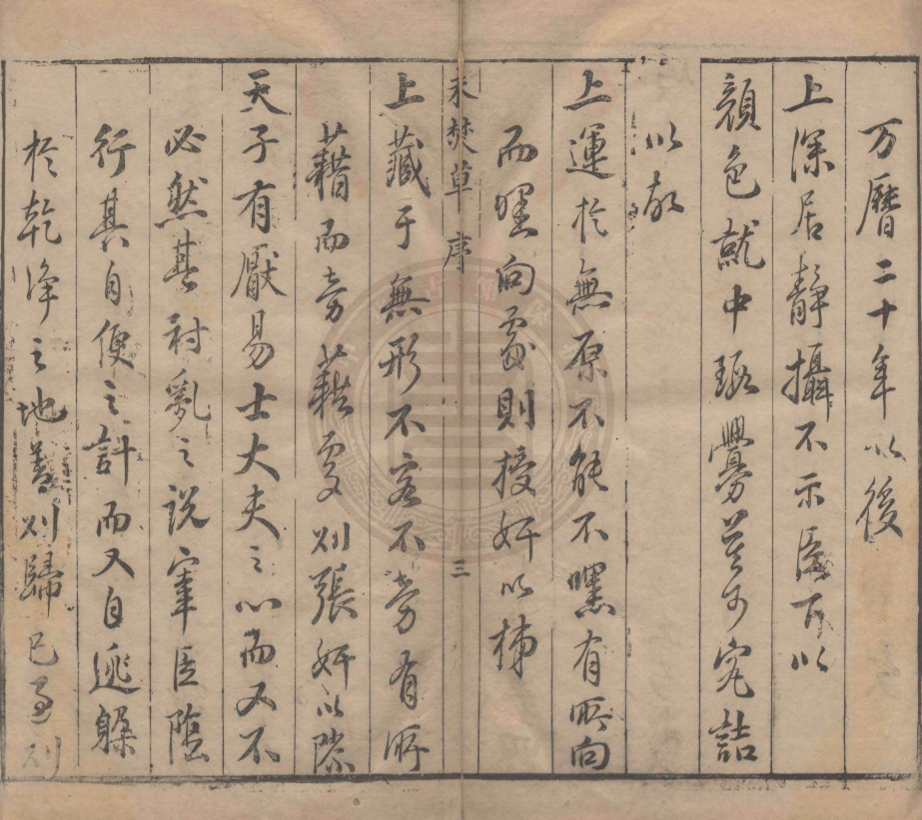 万曆二十年以後
上深居靜攝不示臣下以
顏色就中瑕釁莫可究詰
以故
上運於無原不能不嘿有所向
而嘿向處則授奸以梯
未焚草 序 三
上藏于無形不容不旁有所
藉而旁藉處則張奸以隙
天子有厭易士大夫之心而又不
必然其討亂之説宰臣陰
行其自便之計而又自逃躲
於乾淨之地善則歸已過則